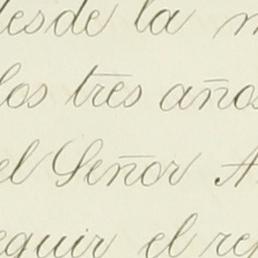 desde la
los tres años
el Señor A
seguir el rep